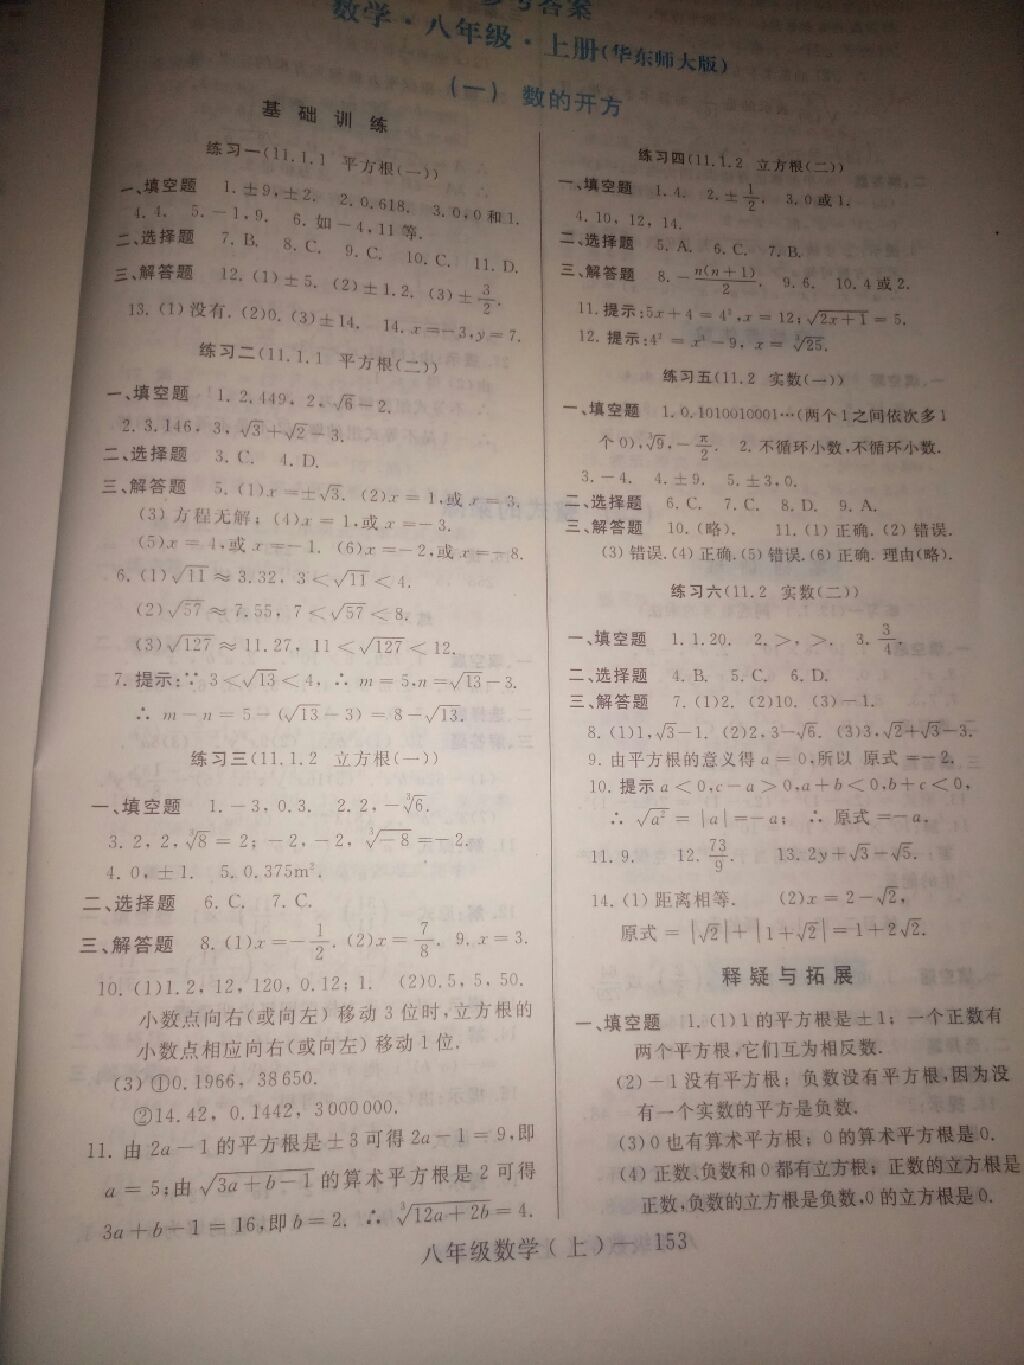 参考答案
数学·八年级·上册(华东师大版)
(一) 数的开方
基础训练
练习一(11.1.1 平方根(一))
一、填空题 1.±9,±2. 2.0.618. 3.0,0和1.
4.4. 5.-1,9. 6.如-4,11等.
二、选择题 7.B. 8.C. 9.C. 10.C. 11.D.
三、解答题 12.(1)±5. (2)±1.2. (3)±3/2.
13.(1)没有. (2)0. (3)±14. 14.x=-3,y=7.
练习二(11.1.1 平方根(二))
一、填空题 1.2.449. 2.√6-2.
2.3.146. 3.√3+√2-3.
二、选择题 3.C. 4.D.
三、解答题 5.(1)x=±√3. (2)x=1,或x=3.
(3)方程无解; (4)x=1,或x=-3.
(5)x=4,或x=-1. (6)x=-2,或x=-8.
6.(1)√11≈3.32, 3<√11<4.
(2)√57≈7.55, 7<√57<8.
(3)√127≈11.27, 11<√127<12.
7.提示:∵3<√13<4, ∴m=5,n=√13-3.
∴m-n=5-(√13-3)=8-√13.
练习三(11.1.2 立方根(一))
一、填空题 1.-3,0.3. 2.2,-∛6.
3.2,2,∛8=2; -2,-2,∛-8=-2.
4.0,±1. 5.0.375m³.
二、选择题 6.C. 7.C.
三、解答题 8.(1)x=-1/2. (2)x=7/8. 9.x=3.
10.(1)1.2,12,120,0.12;1. (2)0.5,5,50.
小数点向右(或向左)移动3位时,立方根的
小数点相应向右(或向左)移动1位.
(3)①0.1966, 38650.
②14.42, 0.1442, 3000000.
11.由2a-1的平方根是±3可得2a-1=9,即
a=5;由√3a+b-1的算术平方根是2可得
3a+b-1=16,即b=2. ∴∛12a+2b=4.
练习四(11.1.2 立方根(二))
一、填空题 1.4. 2.±1/2. 3.0或1.
4.10, 12, 14.
二、选择题 5.A. 6.C. 7.B.
三、解答题 8.-n(n+1)/2. 9.6. 10.4或2.
11.提示:5x+4=4³,x=12; √2x+1=5.
12.提示:4²=x³-9, x=∛25.
练习五(11.2 实数(一))
一、填空题 1.0.1010010001…(两个1之间依次多1
个0),∛9,-π/2. 2.不循环小数,不循环小数.
3.-4. 4.±9. 5.±3,0.
二、选择题 6.C. 7.C. 8.D. 9.A.
三、解答题 10.(略). 11.(1)正确. (2)错误.
(3)错误. (4)正确. (5)错误. (6)正确. 理由(略).
练习六(11.2 实数(二))
一、填空题 1.1.20. 2.>,>. 3.3/4.
二、选择题 4.B. 5.C. 6.D.
三、解答题 7.(1)2. (2)10. (3)-1.
8.(1)1,√3-1. (2)2,3-√6. (3)3,√2+√3-3.
9.由平方根的意义得a=0,所以 原式=-2.
10.提示a<0,c-a>0,a+b<0,b+c<0,
∴√a²=|a|=-a; ∴原式=-a.
11.9. 12.73/9. 13.2y+√3-√5.
14.(1)距离相等. (2)x=2-√2,
原式=|√2|+|1+√2|=1+2√2.
释疑与拓展
一、填空题 1.(1)1的平方根是±1; 一个正数有
两个平方根,它们互为相反数.
(2)-1没有平方根; 负数没有平方根,因为没
有一个实数的平方是负数.
(3)0也有算术平方根; 0的算术平方根是0.
(4)正数、负数和0都有立方根; 正数的立方根是
正数,负数的立方根是负数,0的立方根是0.
八年级数学(上)— 153